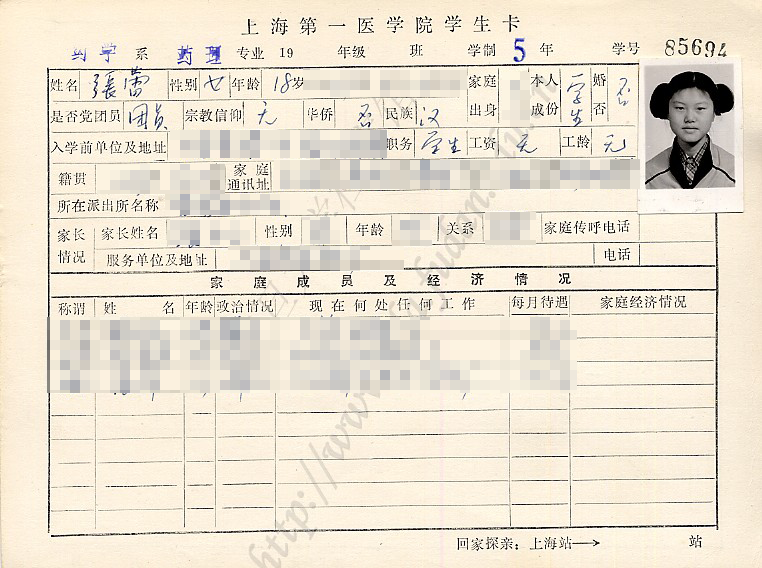 上海第一医学院学生卡
药学 系 药理 专业 19 年级 班 学制 5 年 学号 85694
姓名 張蕾 性别 女 年龄 18岁 家庭出身 本人成份 学生 婚否 否
是否党团员 团员 宗教信仰 无 华侨 否 民族 汉
入学前单位及地址 职务 学生 工资 无 工龄 无
籍贯 家庭通讯址
所在派出所名称
家长情况 家长姓名 性别 年龄 关系 家庭传呼电话
服务单位及地址 电话
家庭成员及经济情况
称谓 姓名 年龄 政治情况 现在何处任何工作 每月待遇 家庭经济情况
回家探亲：上海站⟶ 站